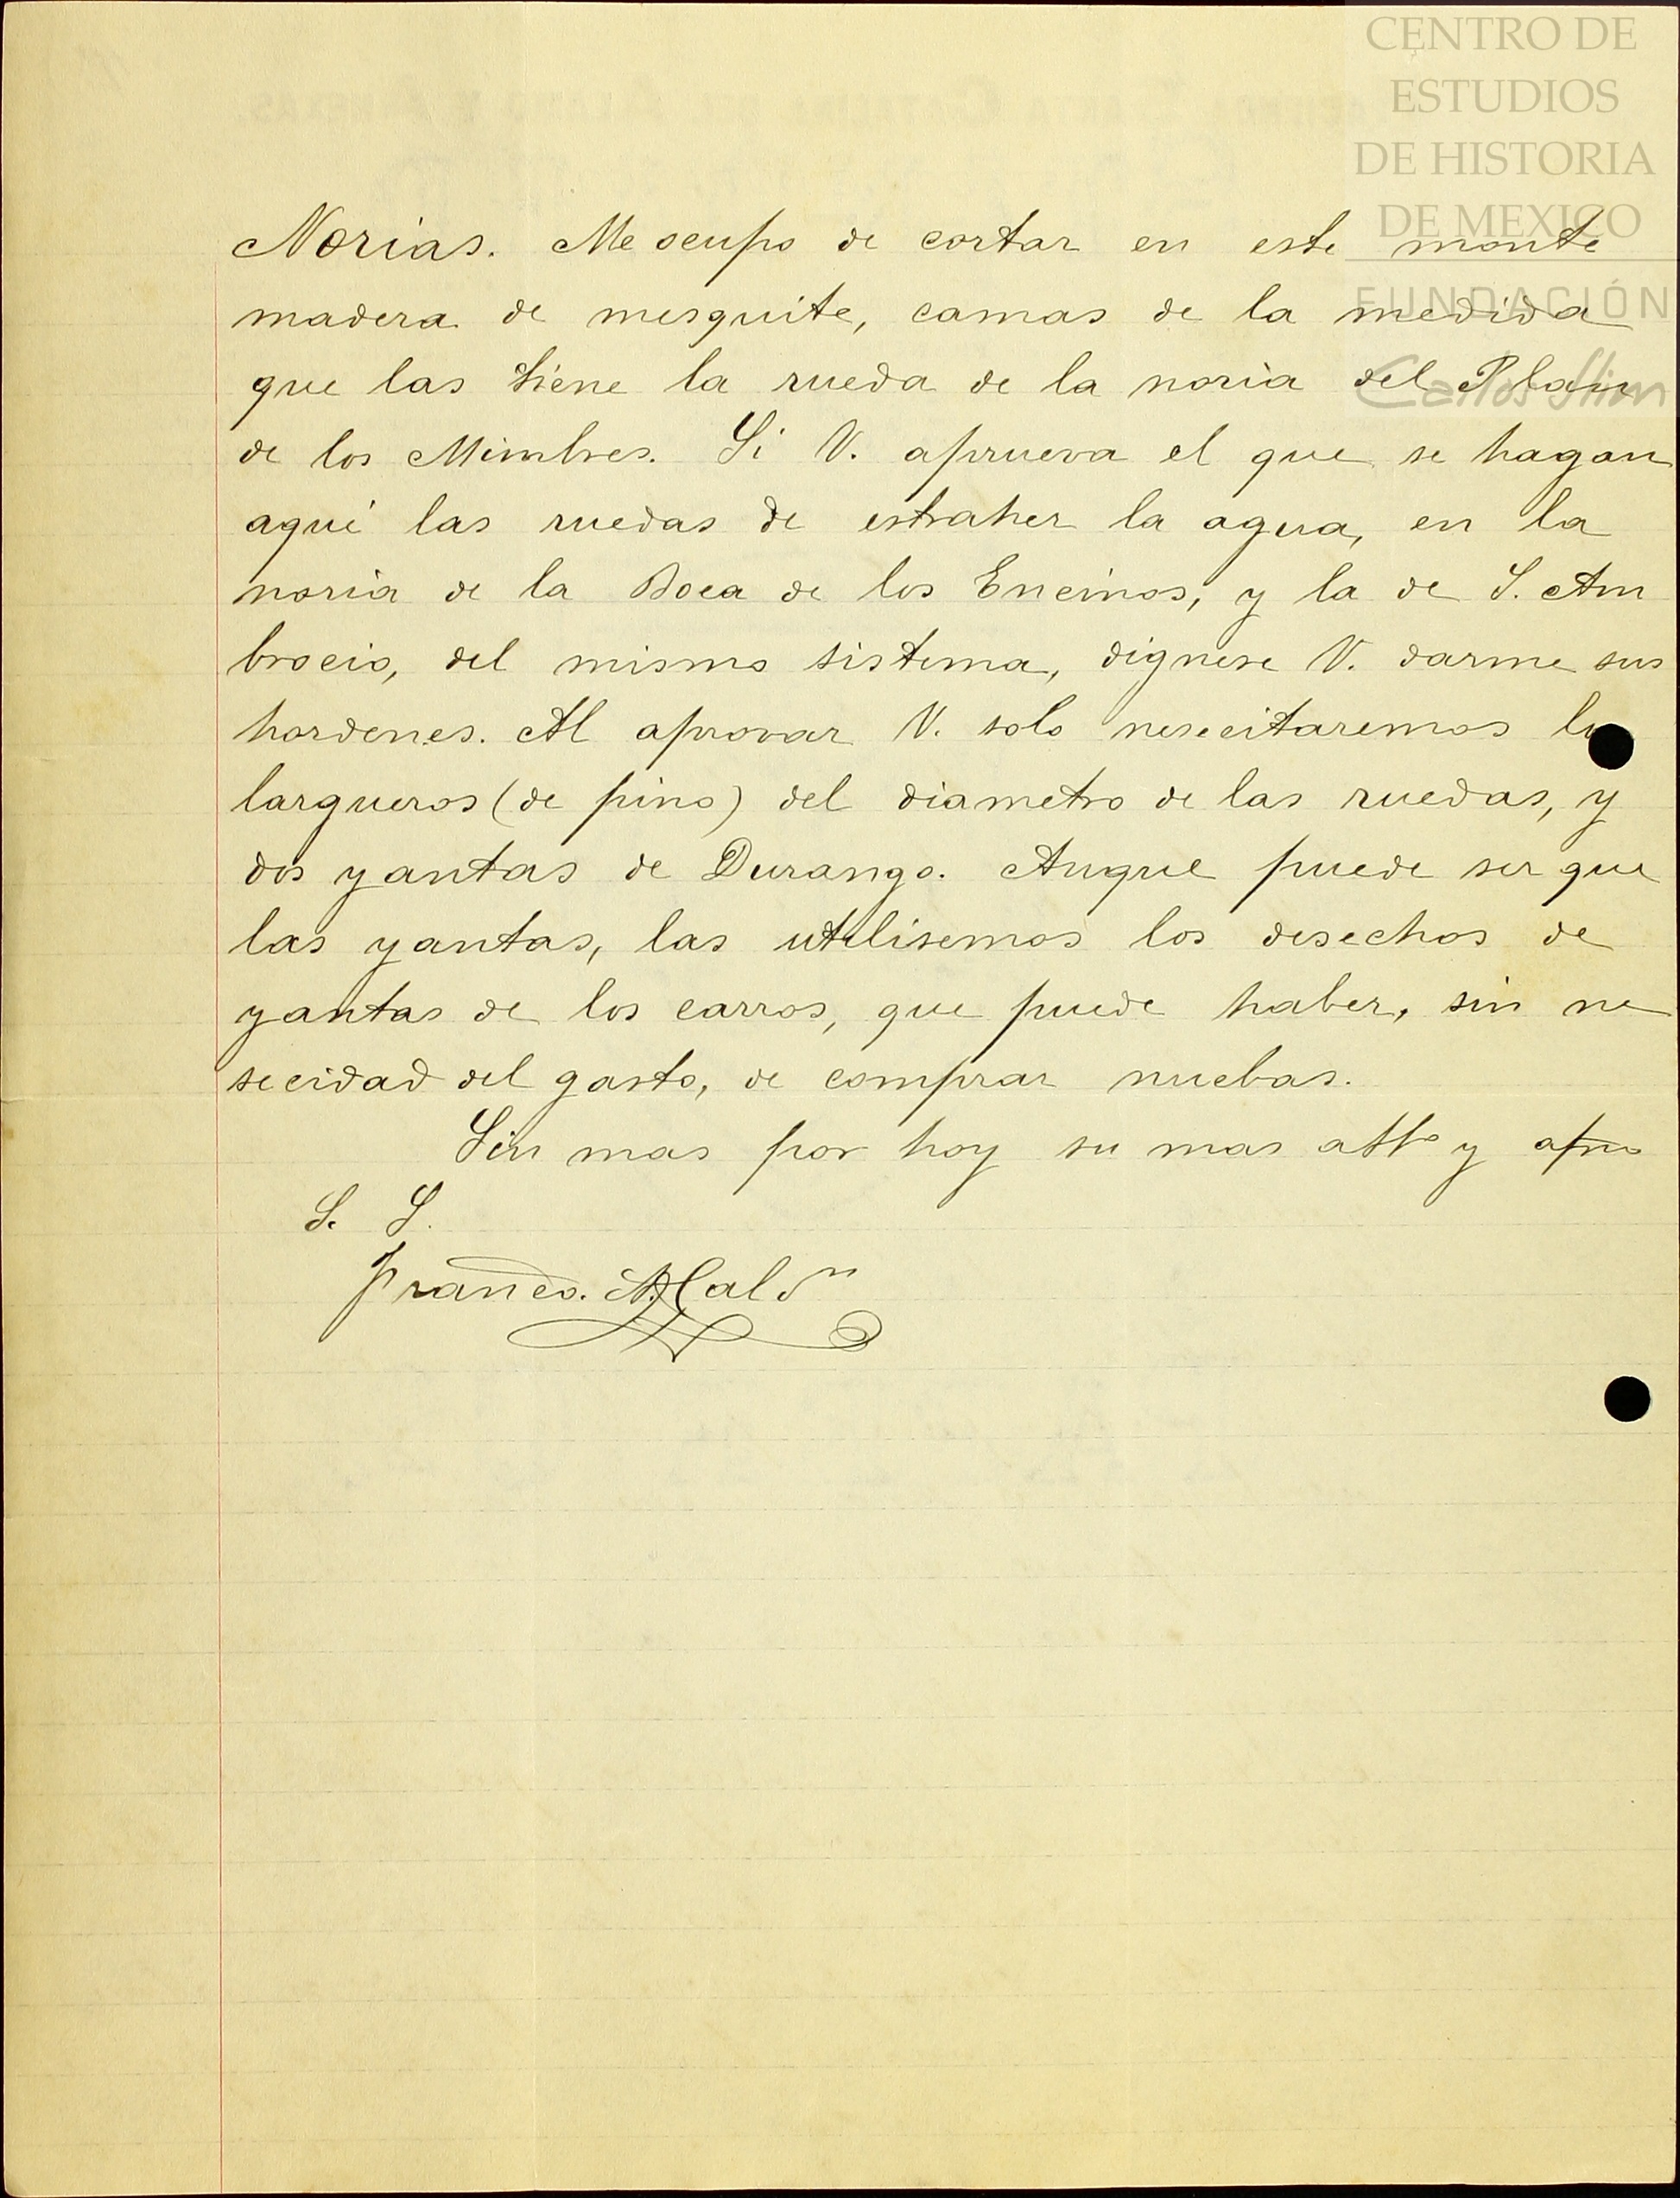 CENTRO DE
ESTUDIOS
DE HISTORIA
DE MEXICO
FUNDACIÓN
Carlos Slim
Norias. Me ocupo de cortar en este monte
madera de mesquite, camas de la medida
que las tiene la rueda de la noria del Plan
de los Mimbres. Si V. aprueva el que se hagan
aquí las ruedas de estraher la agua, en la
noria de la Boca de los Encinos, y la de S. Am
brocio, del mismo sistema, dignese V. darme sus
hordenes. Al aprovar V. solo nesecitaremos
largueros (de pino) del diametro de las ruedas, y
dos yantas de Durango. Auque puede ser que
las yantas, las utilisemos los desechos de
yantas de los carros, que puede haber, sin ne
secidad del gasto, de comprar nuebas.
Sin mas por hoy su mas atto y afmo
S. S.
Franco.